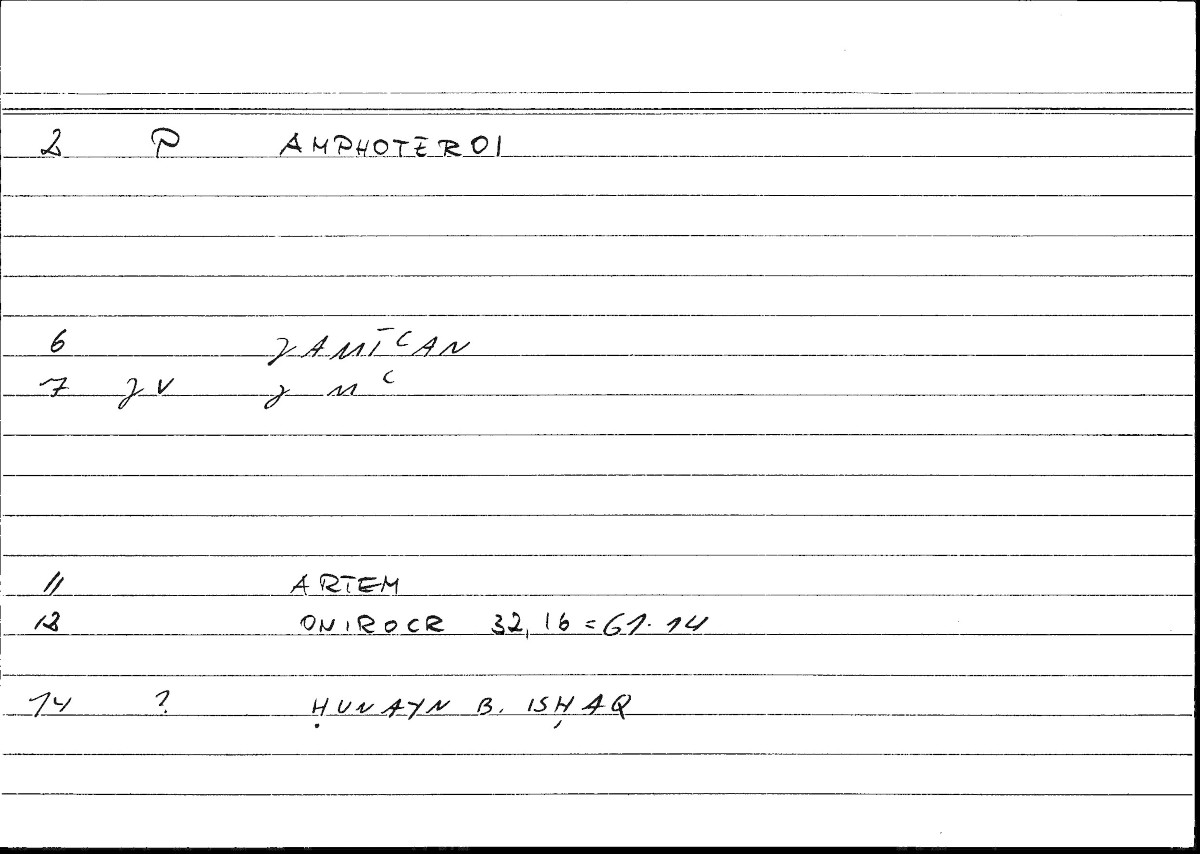 2 P AMPHOTEROI
6 JAMĪʿAN
7 JV J M ʿ
11 ARTEM
12 ONIROCR 32,16 = 61.14
14 ? ḤUNAYN B. ISḤAQ